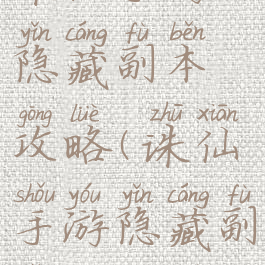 yǐn cáng fù běn
隐藏副本
gōng lüè zhū xiān
攻略(诛仙
shǒu yóu yǐn cáng fù
手游隐藏副